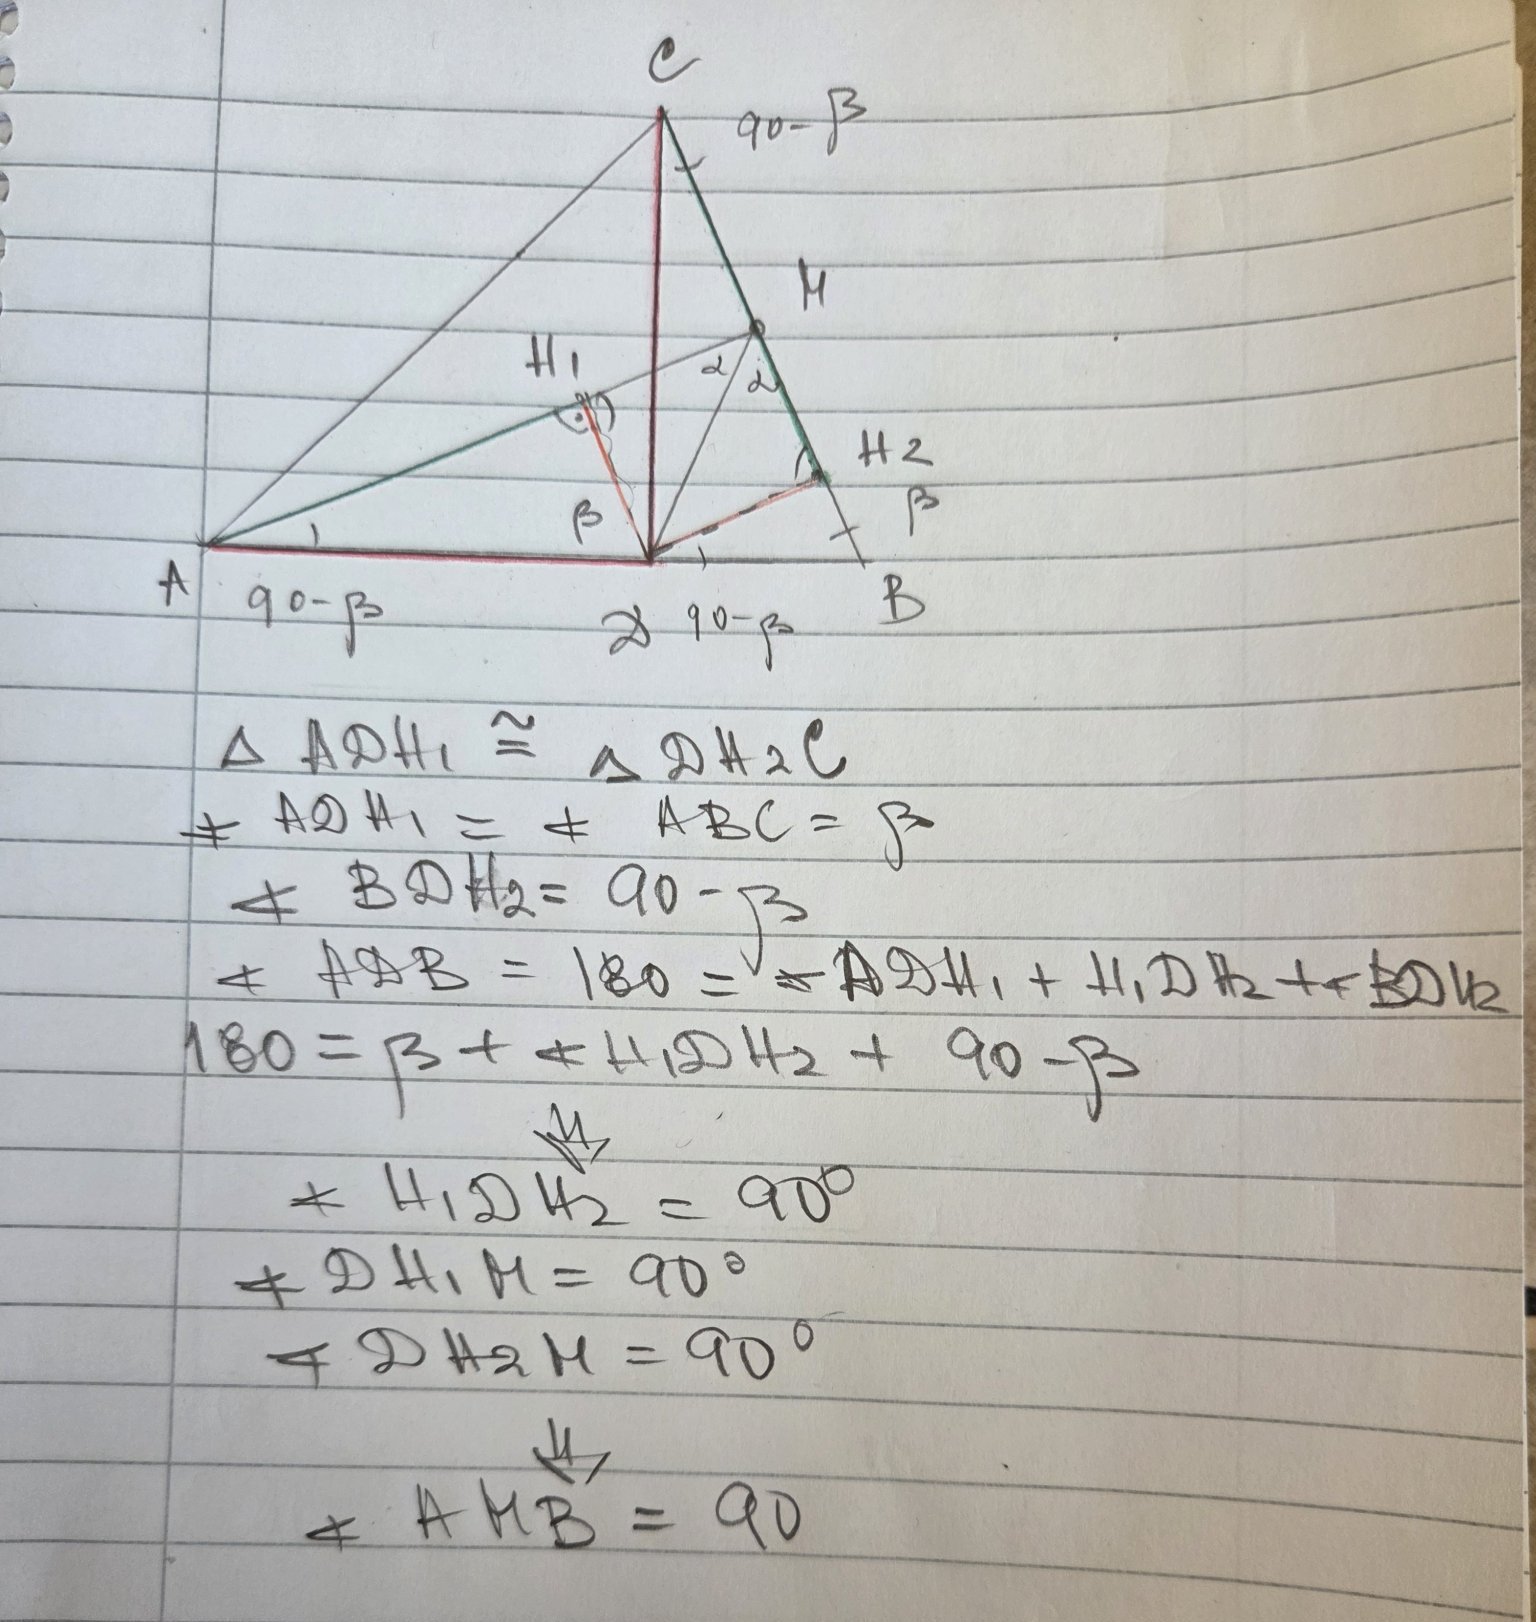 C
90-β
M
H1
α α
H2
β β
A 90-β D 90-β B
△ ADH1 ≅ △ DH2C
∢ ADH1 = ∢ ABC = β
∢ BDH2 = 90-β
∢ ADB = 180 = ∢ ADH1 + H1DH2 + ∢ BDH2
180 = β + ∢ H1DH2 + 90-β
⇓
∢ H1DH2 = 90°
∢ DH1M = 90°
∢ DH2M = 90°
⇓
∢ AMB = 90